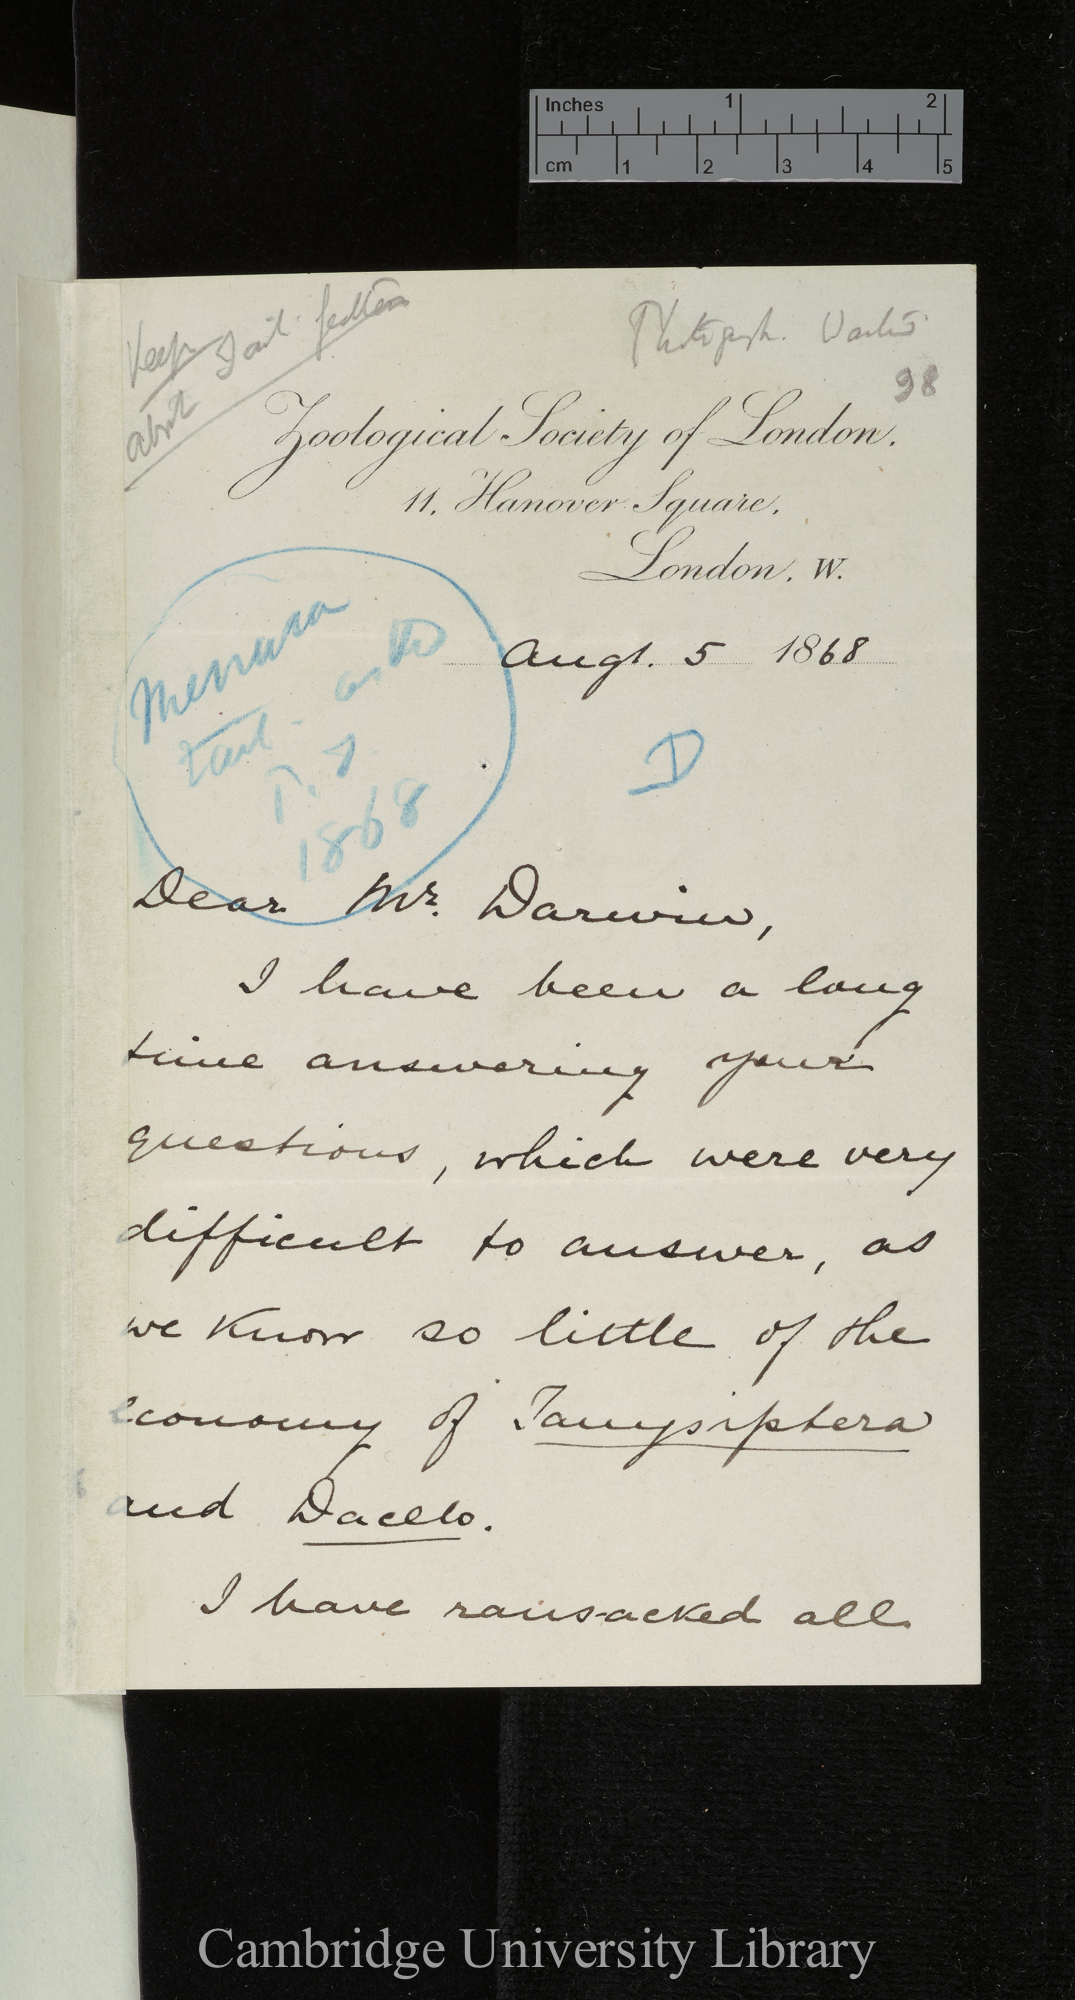 Inches 1 2
cm 1 2 3 4 5
Keep
about
98
Zoological Society of London.
11, Hanover Square,
London, W.
Augt. 5 1868
Menura
tail
1868
D
Dear Mr. Darwin,
I have been a long
time answering your
questions, which were very
difficult to answer, as
we know so little of the
economy of Tanysiptera
and Dacelo.
I have ransacked all
Cambridge University Library